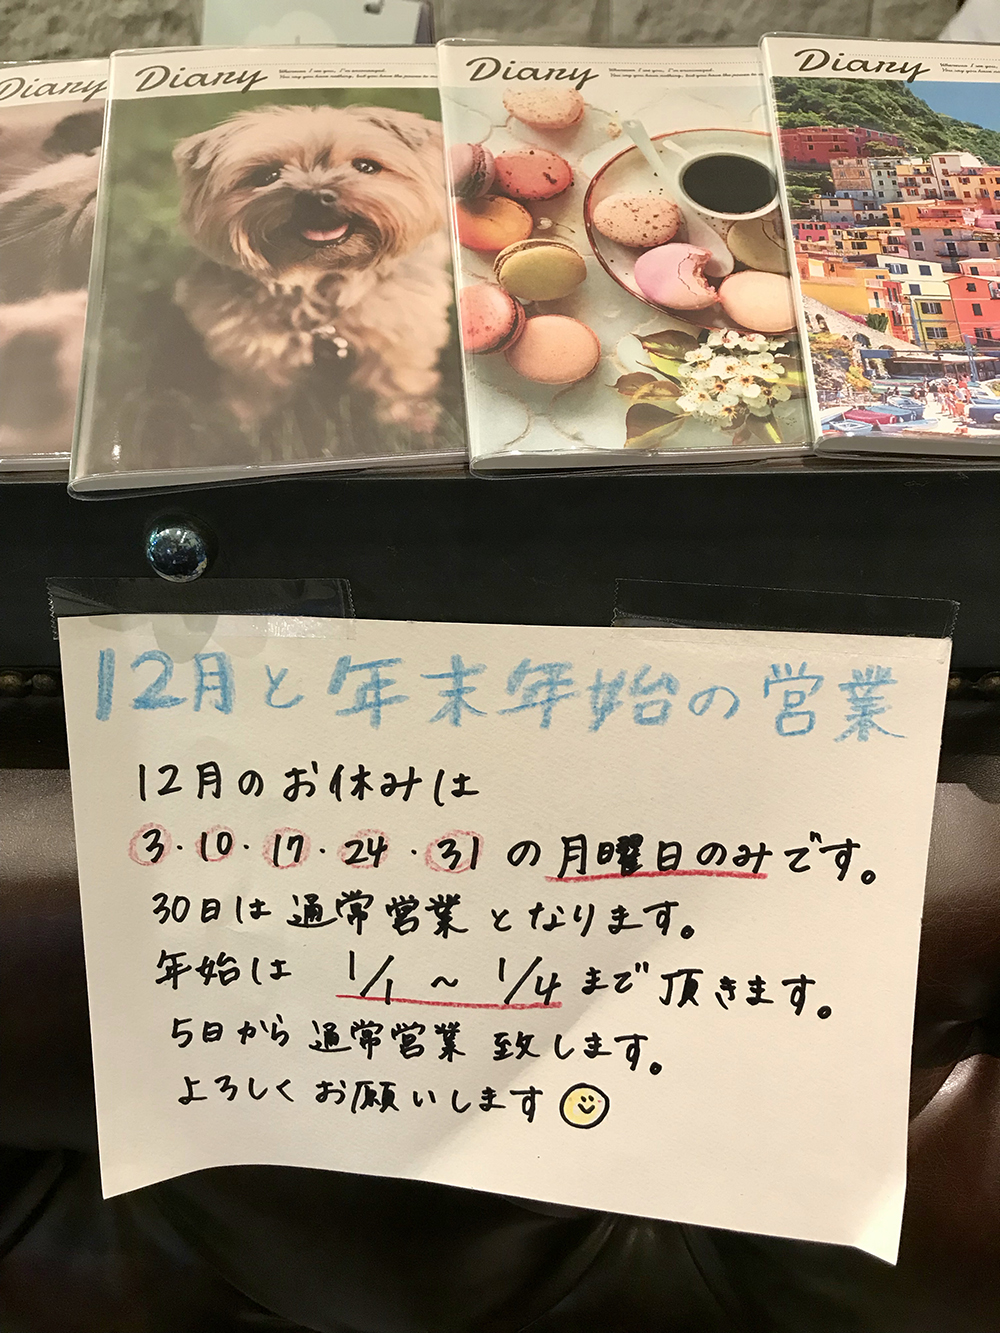 Diary
Diary
Whenever I see you, I'm encouraged.
Diary
Whenever I see you, I'm encouraged.
Diary
12月と年末年始の営業
12月のお休みは
3・10・17・24・31の月曜日のみです。
30日は通常営業となります。
年始は 1/1 ～ 1/4 まで頂きます。
5日から通常営業 致します。
よろしくお願いします